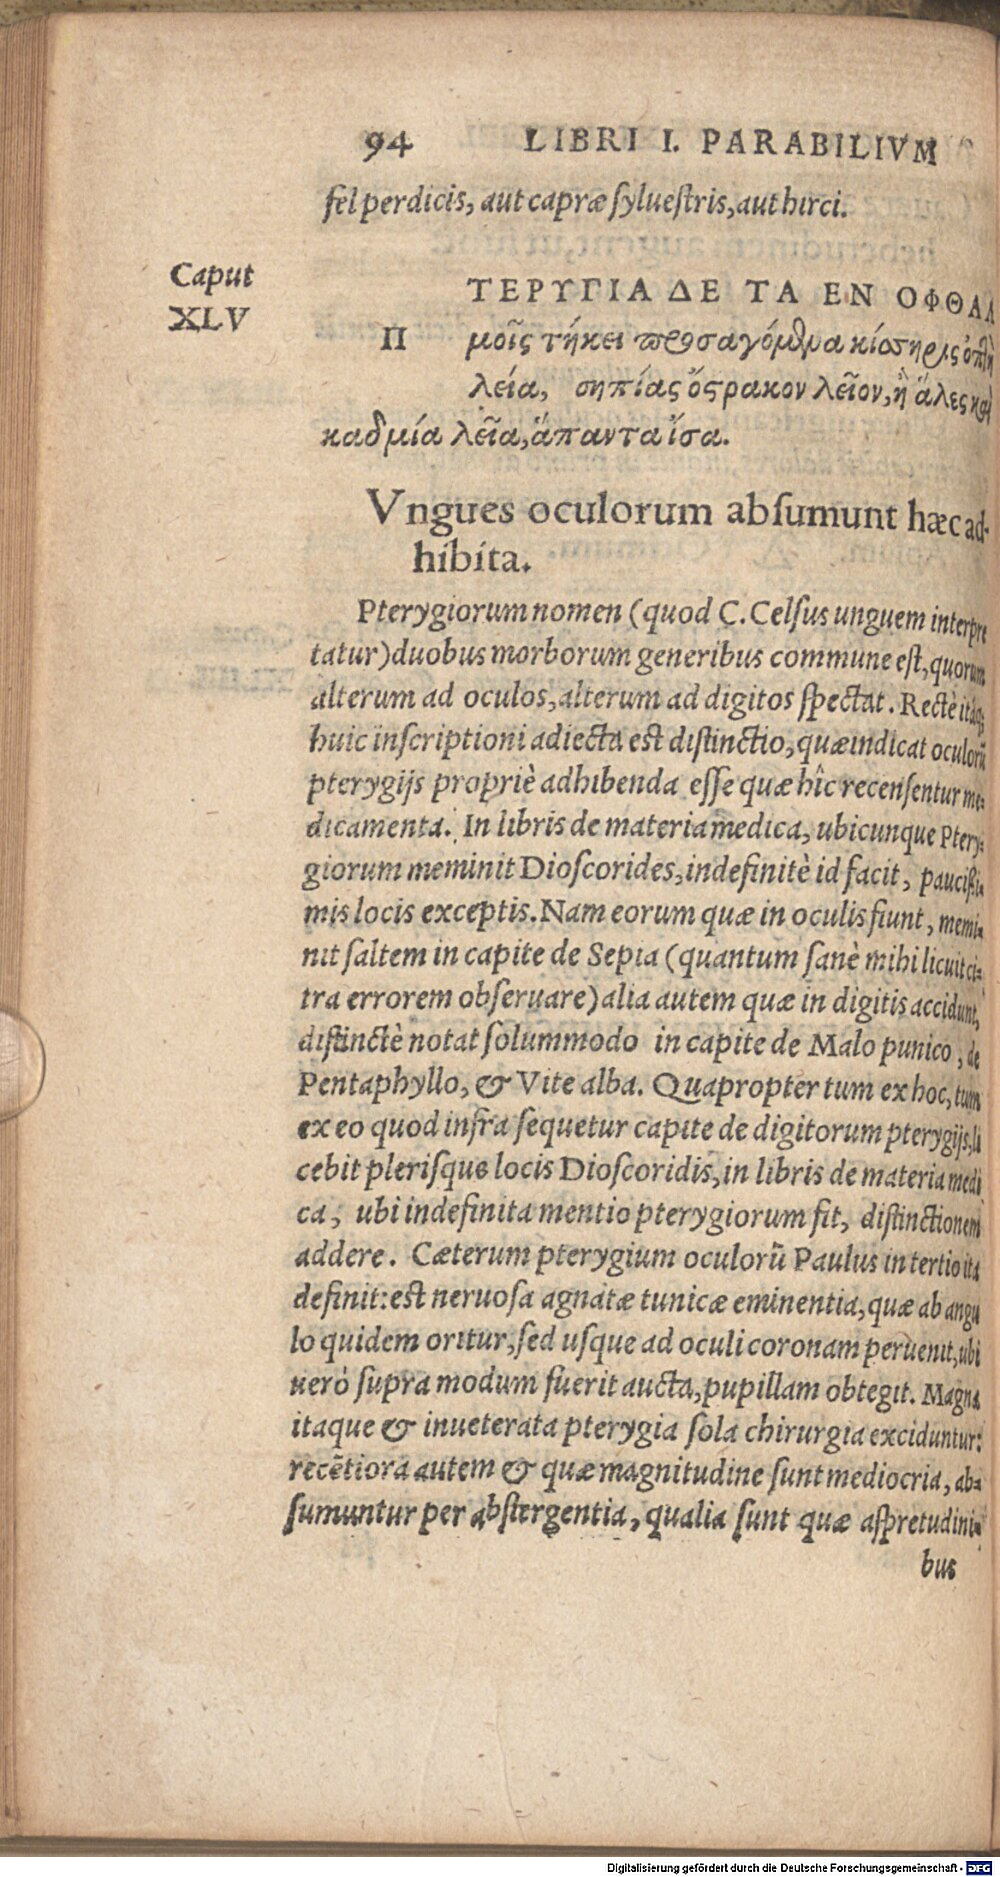 94 LIBRI I. PARABILIVM
fel perdicis, aut capræ syluestris, aut hirci.
Caput
XLV
ΤΕΡΥΓΙΑ ΔΕ ΤΑ ΕΝ ΟΦΘΑΛ
Π μοῖς τήκει προσαγόμενα κίσσηρις ὀπτὴ
λεία, σηπίας ὄστρακον λεῖον, ἢ ἅλες καὶ
καδμία λεῖα, ἅπαντα ἴσα.
Vngues oculorum absumunt hæc ad-
hibita.
Pterygiorum nomen (quod C. Celsus unguem interpre
tatur) duobus morborum generibus commune est, quorum
alterum ad oculos, alterum ad digitos spectat. Rectè itaq;
huic inscriptioni adiecta est distinctio, quæ indicat oculorū
pterygijs propriè adhibenda esse quæ hîc recensentur me-
dicamenta. In libris de materia medica, ubicunque Ptery-
giorum meminit Dioscorides, indefinitè id facit, paucissi-
mis locis exceptis. Nam eorum quæ in oculis fiunt, memi-
nit saltem in capite de Sepia (quantum sanè mihi licuit ci-
tra errorem obseruare) alia autem quæ in digitis accidunt,
distinctè notat solummodo in capite de Malo punico, de
Pentaphyllo, & Vite alba. Quapropter tum ex hoc, tum
ex eo quod infra sequetur capite de digitorum pterygijs, li
cebit plerisque locis Dioscoridis, in libris de materia medi
ca, ubi indefinita mentio pterygiorum fit, distinctionem
addere. Cæterum pterygium oculorū Paulus in tertio ita
definit: est neruosa agnatæ tunicæ eminentia, quæ ab angu
lo quidem oritur, sed usque ad oculi coronam peruenit, ubi
uerò supra modum fuerit aucta, pupillam obtegit. Magna
itaque & inueterata pterygia sola chirurgia exciduntur:
recētiora autem & quæ magnitudine sunt mediocria, ab-
sumuntur per abstergentia, qualia sunt quæ aspretudini-
bus
Digitalisierung gefördert durch die Deutsche Forschungsgemeinschaft - DFG